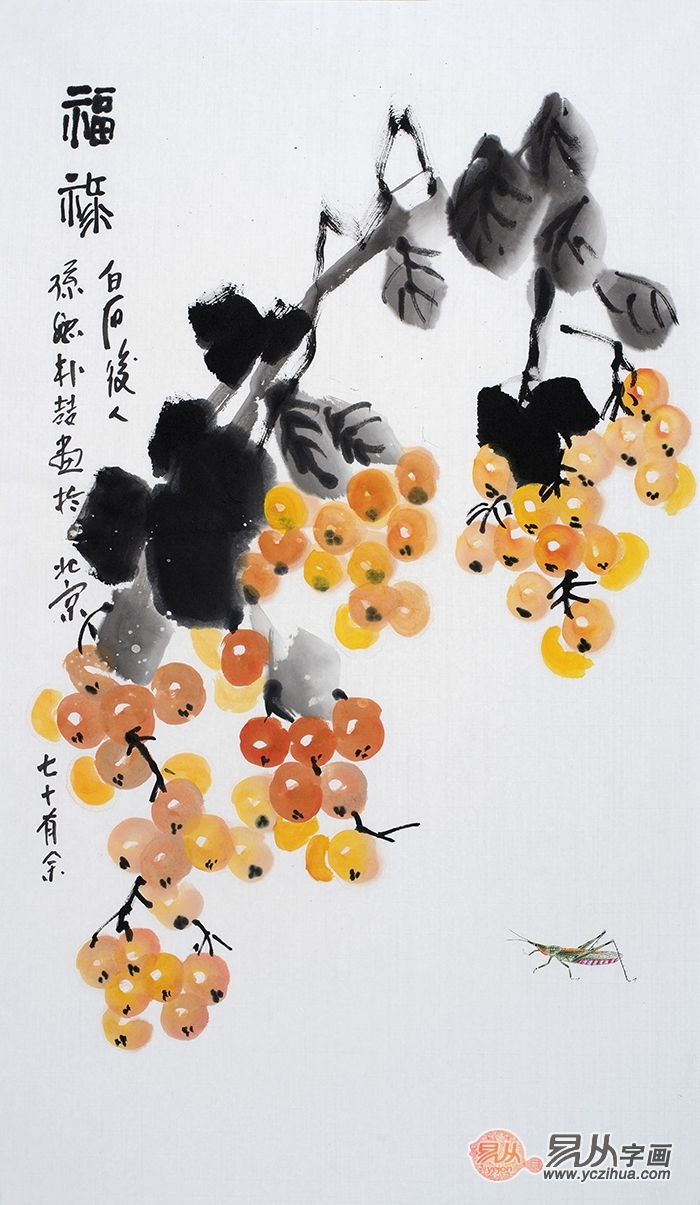 福祿
白石後人
孫媳朴喆画於北京
七十有余
易从
易从字画
www.yczihua.com